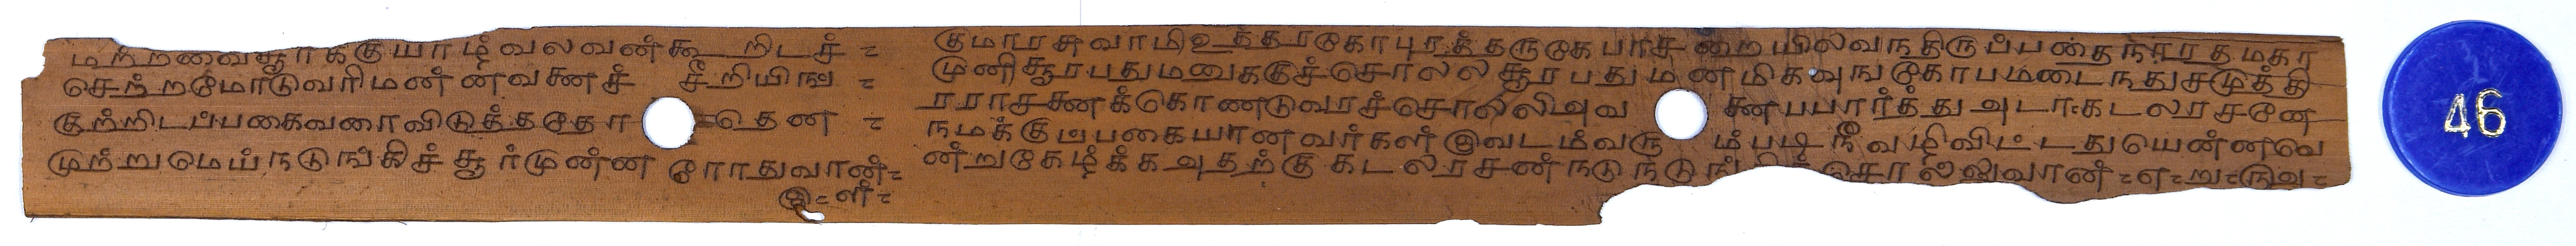 மற்றவைசூர்க்குயாழ்வலவன்கூறிடச் =
செற்றமோடுவரிமன்னவனைச் சீறியிஙு =
குற்றிடப்பகைவரைவிடுத்ததோ தென =
முற்றுமெய்நடுங்கிச்சூர்முன்ன ரோதுவான் =
இ = ள் =
குமாரசுவாமிஉத்தரகோபுரத்தருகே பாச றையிலவந்திருப்பதைநாரதமகா
முனிசூரபதுமனுக்குச்சொல்ல சூரபதுமன்மிகவுங்கோபமடைந்துசமுத்தி
ரராசனைக்கொண்டுவரச்சொல்லிஅவ னைபபார்த்து அடா கடலரசனே
நமக்குப்பகையானவர்கள் இவடம்வரு ம்படிநீவழிவிட்டதுயென்னவெ
ன்றுகேழ்க்கஅதற்கு கடலரசன்நடுநடுங் சொல்லுவான் = எ = று =
46